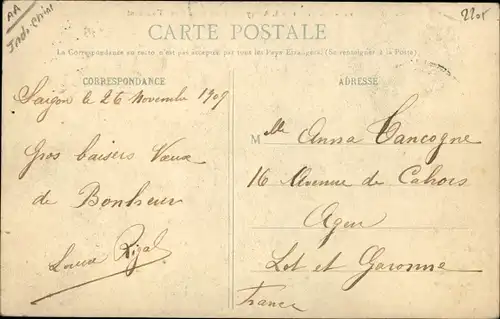 AA
Indochine
2205
CARTE POSTALE
La Correspondance au recto n'est pas acceptée par tous les Pays Etrangers. (Se renseigner à la Poste).
CORRESPONDANCE
ADRESSE
Saïgon le 26 Novembre 1909
Gros baisers Vœux
de Bonheur
Rigal
Mlle Anna Cancogne
16 Avenue de Cahors
Agen
Lot et Garonne
France